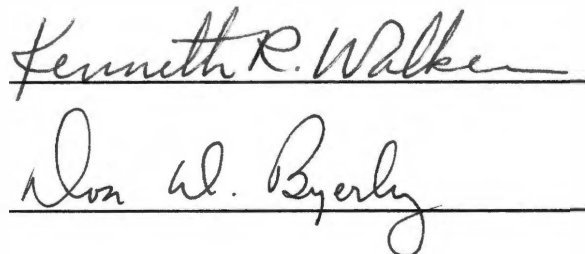 Kenneth R. Walker
Don W. Byerly